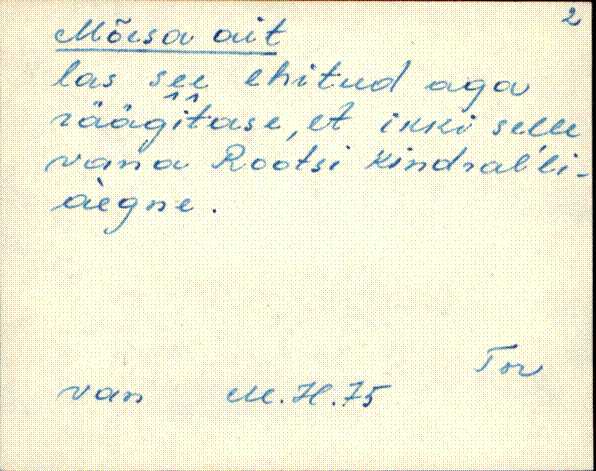 2
Mõisa ait
las see ehitud aga
räägîtase, et ikki selle
vana Rootsi kindral'li-
àegne.
Tor
van M.H.75